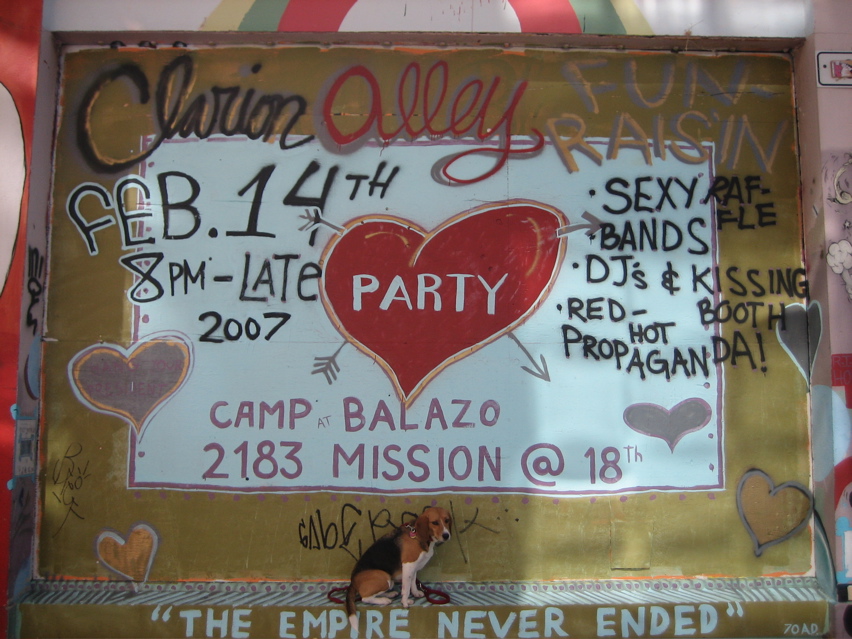 Clarion Alley
FUN-
RAISIN
FEB. 14TH
8PM-LATE
2007
PARTY
• SEXY RAF-
FLE
• BANDS
• DJ's & KISSING
BOOTH
• RED-
HOT
PROPAGANDA!
CAMP AT BALAZO
2183 MISSION @ 18Th
"THE EMPIRE NEVER ENDED"
70 A.D.